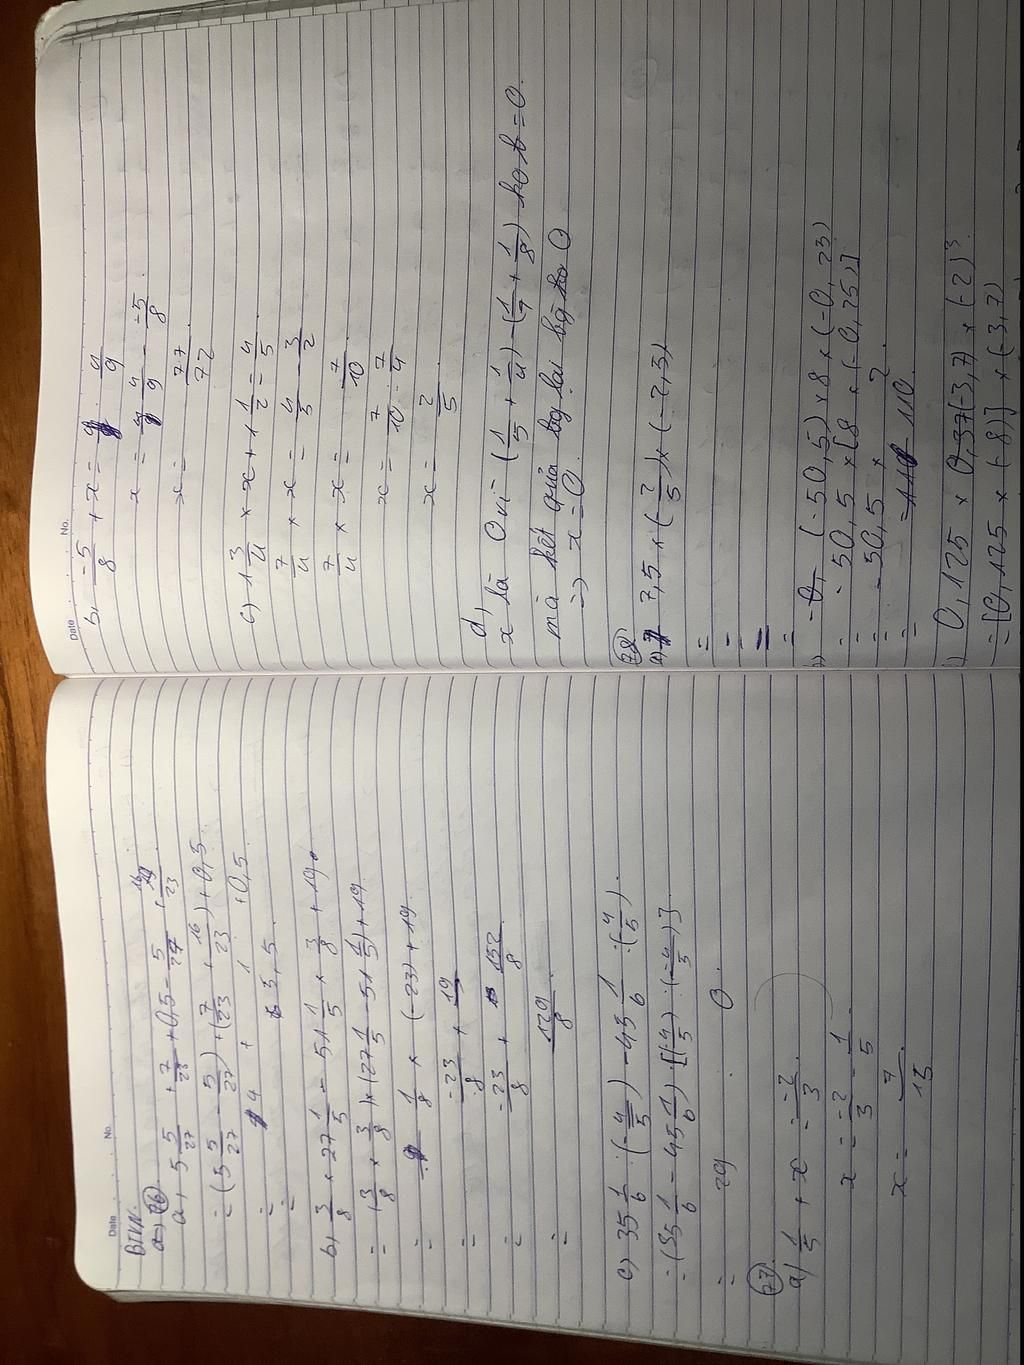 Date No.
BTVN.
a) 26
a, 5 5/27 + 7/23 + 0,5 - 5/27 + 16/23
= (5 5/27 - 5/27) + (7/23 + 16/23) + 0,5.
= 4 + 1 + 0,5.
= 3,5
b) 3/8 × 27 1/5 - 51 1/5 × 3/8 + 19.
= 3/8 × (27 1/5 - 51 1/5) + 19.
= 1/8 × (-23) + 19.
= -23/8 + 19
= -23/8 + 152/8
= 129/8.
c) 35 1/6 : (-4/5) - 45 1/6 : (-4/5).
= (35 1/6 - 45 1/6) : [(-4/5) : (-4/5)]
= 29 0.
27.
a) 1/5 + x = -2/3.
x = -2/3 - 1/5.
x = 7/15.
Date No.
b, -5/8 + x = 4/9
x = 4/9 - -5/8.
x = 77/72
c) 1 3/4 × x + 1 1/2 = 4/5
7/4 × x = 4/5 - 3/2
7/4 × x = 7/10
x = 7/10 : 7/4
x = 2/5
d,
x là 0 vì (1/5 + 1/4) - (1/7 + 1/8) ko b = 0.
mà kết quả bg lại bg 0
=> x = 0.
28
a) 7,5 × (-2/5) × (-2,5)
=
=
=
=
b) (-50,5) × 8 × (-0,25)
= -50,5 × [8 × (-0,25)]
= -50,5 × 2
= 110.
) 0,125 × (-3,7) × (-2)³
= [0,125 × (-8)] × (-3,7)